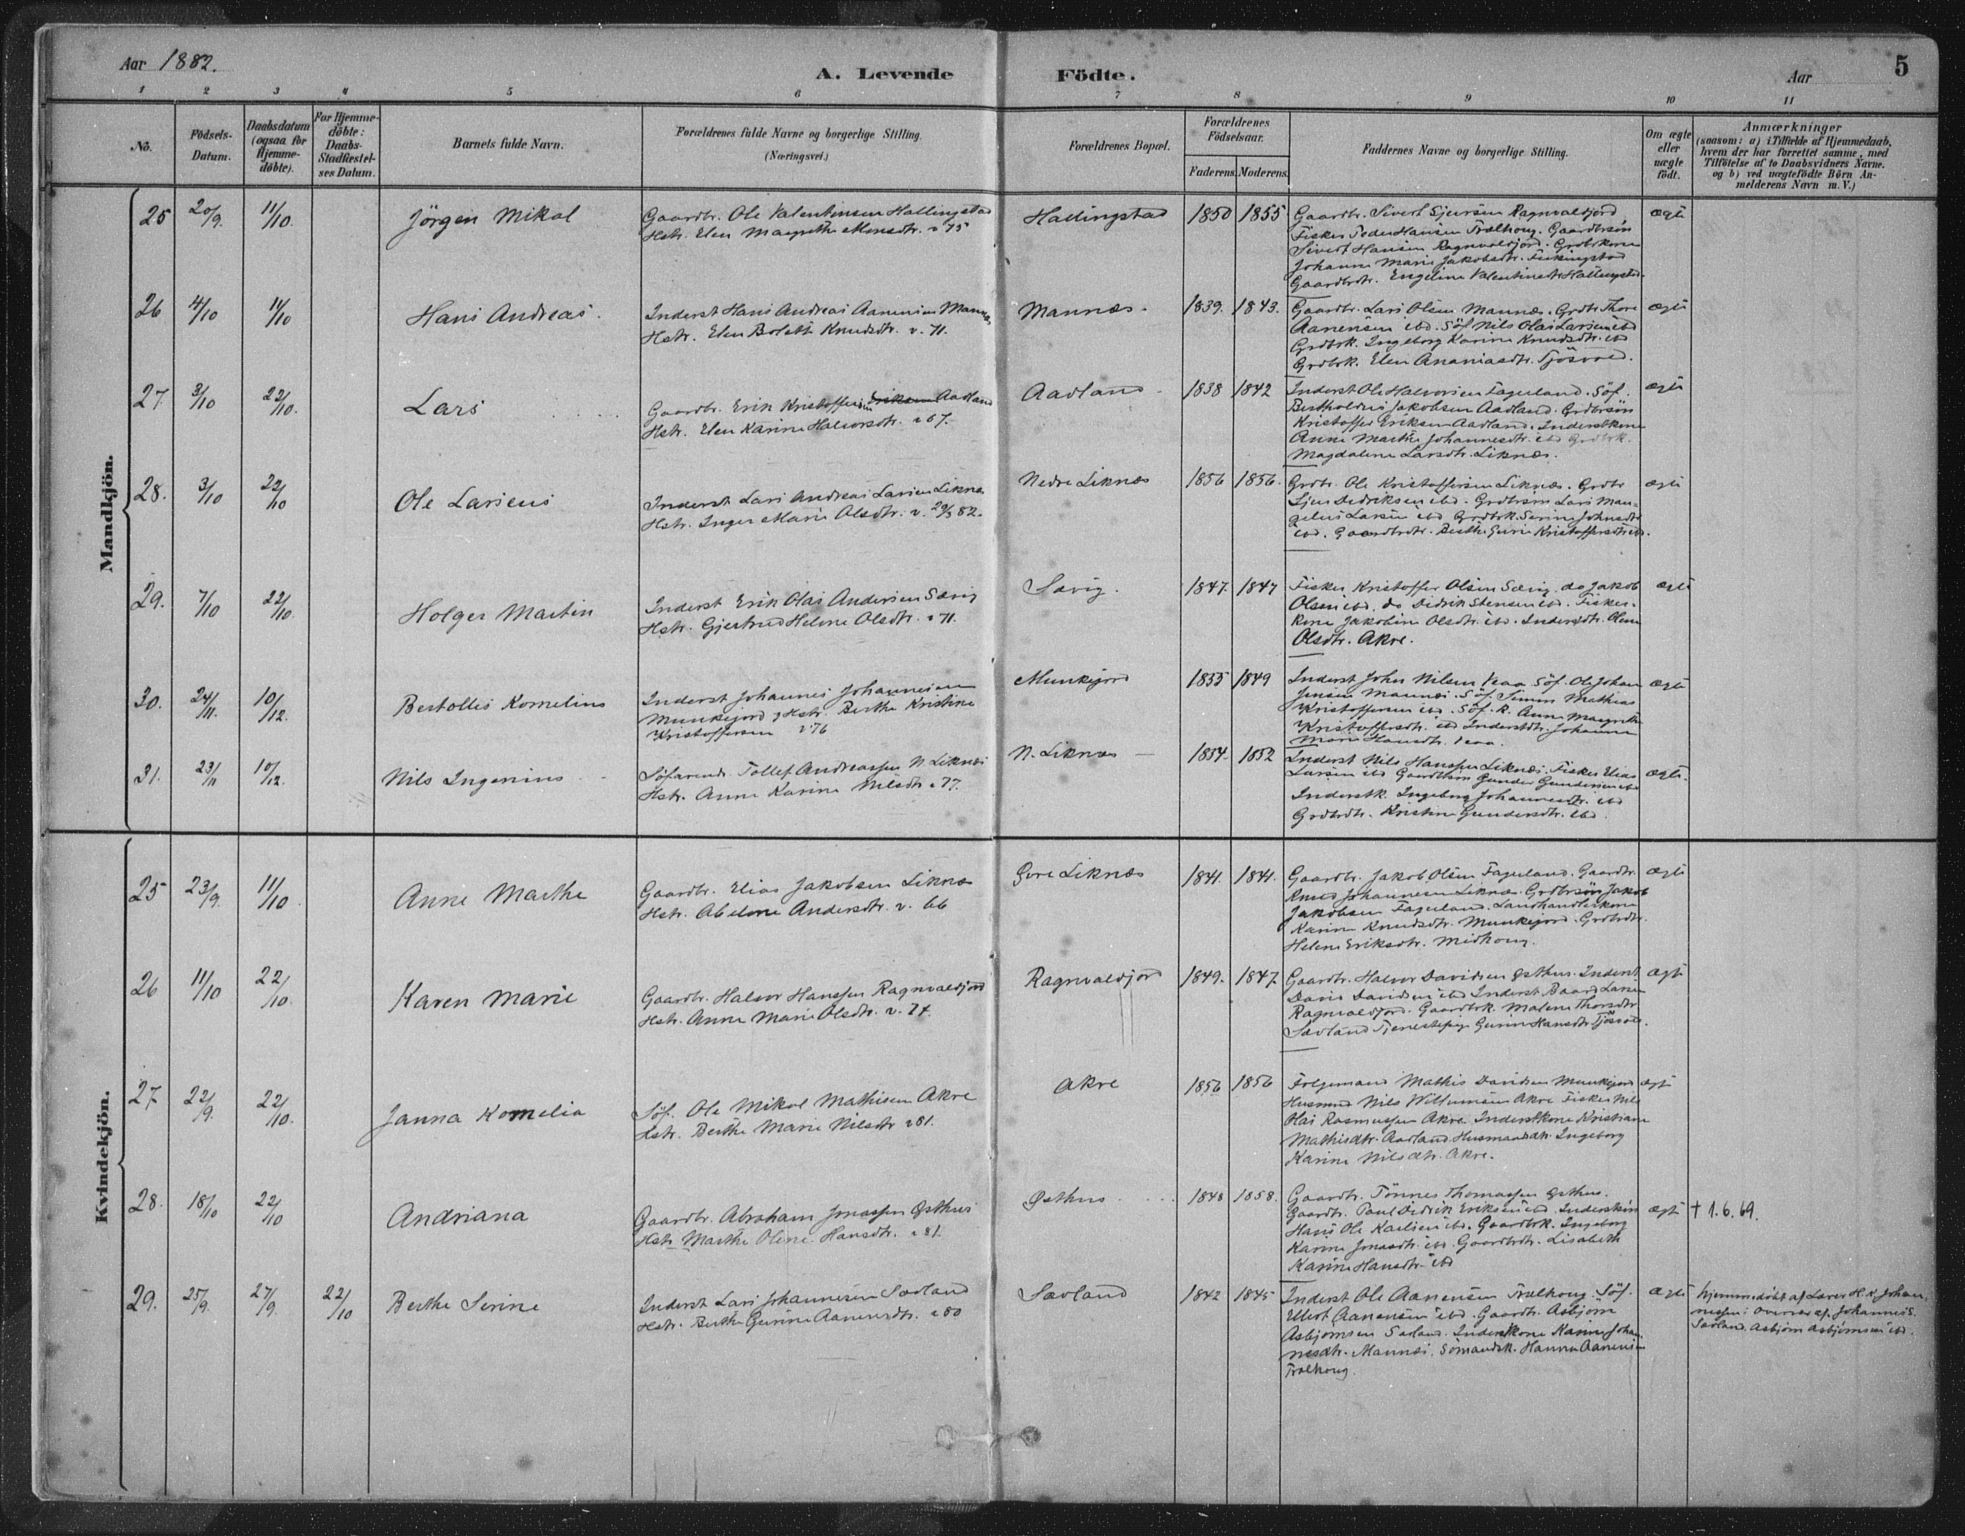 Aar 1882.
A. Levende
Födte.
Aar
5
1 2 3 4 5 6 7 8 9 10 11
No.
Födsels-Datum.
Daabsdatum (ogsaa for Hjemme-döbte).
For Hjemme-döbte: Daabs-Stadfæstel-ses Datum.
Barnets fulde Navn.
Forældrenes fulde Navne og borgerlige Stilling.
(Næringsvei.)
Forældrenes Bopæl.
Forældrenes Födselsaar.
Faderens. Moderens.
Faddernes Navne og borgerlige Stilling.
Om ægte eller uægte födt.
Anmærkninger
(saasom: a) i Tilfælde af Hjemmedaab,
hvem der har forrettet samme, med
Tilföielse af to Daabsvidners Navne.
og b) ved uægtefödte Börn An-
melderens Navn m. V.)
Mandkjön.
25 20/9. 11/10. Jörgen Mikal
Gaardbr. Ole Valentinsen Hallingstad
Hstr. Elen Margrethe Monsdtr. v 75
Hallingstad 1850 1855
Gaardbr. Sivert Sjursen Ragnvaldsjord
Fisker Peder Hansen Trælhoug. Gaardbrsön
Sivert Hansen Ragnvaldsjord. Grdbrkone
Johanne Marie Jakobsdtr.
Gaardbrdtr. Engeline Valentinsdtr Hallingstad.
ægte
26 4/10 11/10 Hans Andreas.
Inderst Hans Andreas Aanensen Mannes
Hstr. Elen Bolette Knudsdtr. v. 71.
Mannæs. 1839. 1843.
Gaardbr. Lars Olsen Mannæs. Grdbr Thore
Aanensen ibd. Söf. Nils Olai Larsen ibd
Grdbrk. Ingeborg Karine Knudsdtr. ibd
Grdbrk. Elen Ananiasdtr. Tjösvold.
ægte
27. 3/10 22/10. Lars
Gaardbr. Erik Kristoffersen Eriksen Aadland
Hstr. Elen Karine Halvorsdtr. v 67.
Aadland 1838 1842
Inderst Ole Halvorsen Fagerland. Söf.
Bertholdus Jakobsen Aadland. Grdbrsön
Kristoffer Eriksen Aadland. Inderstkone
Anne Marthe Johannesdtr. ibd Grdbrk.
Magdalene Larsdtr. Liknæs.
ægte
28. 3/10 22/10 Ole Larseus
Inderst Lars Andreas Larsen Liknæs
Hstr. Inger Marie Olsdtr. v. 29/3 82.
Nedre Liknæs 1856 1856.
Grdbr. Ole Kristoffersen Liknæs. Grdbr
Didriksen ibd. Grdbrsön Lars Man-
gelus Larsen ibd Grdbrk. Serine Johnsdtr
ibd. Gaardbrdtr. Berthe Gurine Kristoffersdtr ibd.
ægte
29. 7/10 22/10. Holger Martin
Inderst Erik Olai Andersen Sævig
Hstr. Gjertrud Helene Olsdtr. v 71.
Sævig. 1847. 1847
Fisker Kristoffer Olsen Sævig. do Jakob
Olsen ibd. do Didrik Stensen ibd. Fisker-
kone Jakobine Olsdtr. ibd. Inderstdtr. Olene
Olsdtr. Akre.
ægte
30. 24/11. 10/12. Bertolles Kornelius
Inderst Johannes Johannesen
Munkejord, Hstr. Berthe Kristine
Kristoffersen v 76
Munkejord 1855 1849
Inderst John Nilsen Søf. Ole Johan
Jensen Mannæs. Söf. Simon Mathias
Kristoffersen ibd. Söf. K. Anne Margrethe
Kristoffersdtr. ibd Inderstdtr. Johanne
Marie Hansdtr.
ægte
31. 23/11 10/12. Nils Ingenius
Söfarende Tollef Andreassen N. Liknæs
Hstr. Anne Karine Nilsdtr v 77.
N. Liknæs 1854. 1852
Inderst Nils Hanssen Liknæs. Fisker Elias
Larsen ibd Gaardbrsön Gunder Gundersen ibd
Inderstk. Ingeborg Johannesdtr. ibd
Grdbrdtr. Kristine Gundersdtr. ibd.
ægte.
Kvindekjön.
25 23/9. 11/10. Anne Marthe
Gaardbr. Elias Jakobsen Liknæs
Hstr. Abelone Andersdtr. v. 66
Övre Liknæs 1841. 1841.
Gaardbr. Jakob Olsen Fagerland. Gaardbr.
Knud Johannesen Liknæs. Grdbrsön Jakob
Jakobsen Fagerland. Landhandlerkone
Karine Knudsdtr. Munkejord. Grdbrdtr.
Helene Eriksdtr. Midhoug.
ægte
26 11/10 22/10. Karen Marie
Gaardbr. Halvor Hanssen Ragnvaldsjord
Hstr. Anne Marie Olsdtr. v. 74.
Ragnvaldsjord 1849. 1847.
Gaardbr. Halvor Davidsen Østhus. Inderst
David Davidsen ibd Inderst Baard Larsen
Ragnvaldsjord. Gaardbrk. Malene Thorsdtr
Sævland Tjenestepige Gurine Hansdtr Tjösvold.
ægte
27 22/9. 22/10. Janna Kornelia
Söf. Ole Mikal Mathisen Akre
Hstr. Berthe Marie Nilsdtr v 81.
Akre 1856 1856
Folgemand Mathis Davidsen Munkejord
Husmand Nils Akre Fisker Nils
Olai Rasmussen Akre. Inderstkone Kristiane
Mathisdtr. Aadland. Husmandsdtr. Ingeborg
Karine Nilsdtr. Akre.
ægte
28. 18/10 22/10 Andriana
Gaardbr. Abraham Jonassen Østhus
Hstr. Marthe Olene Hansdtr. v 81.
Østhus 1848 1858.
Gaardbr. Tönnes Thomassen Østhus.
Gaardbr. Paul Didrik Eriksen ibd. Inderstsön
Hans Ole Karlsen ibd. Gaardbrk. Ingeborg
Karine Jonasdtr. ibd. Gaardbrdtr. Lisabeth
Karine Hansdtr. ibd
ægte
† 1.6.69.
29. 25/9. 27/9. 22/10 Berthe Serine
Inderst Lars Johannesen Sævland
Hstr. Berthe Gurine Aanensdtr. v 80
Sævland 1842 1845
Inderst Ole Aanensen Trælhoug. Söf.
Elert Aanensen ibd. Gaardbr. Asbjörn
Asbjörnsen Sævland. Inderstkone Karine Johan
nesdtr. Mannæs. Sömandsk. Hanna Aanensen
Trælhoug.
ægte
hjemmedöbt af Lærer H. K. Johan
nessen: Overvær. af. Johannes S.
Sævland. Asbjörn Asbjörnsen ibd.